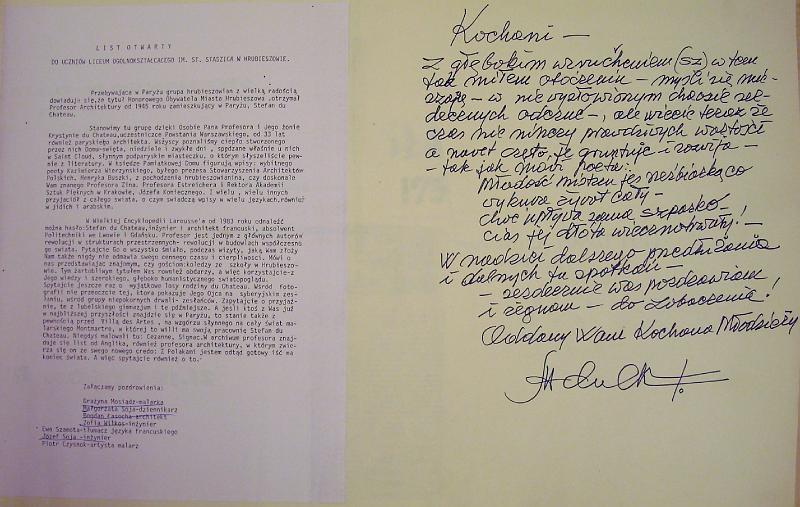 LIST OTWARTY
DO UCZNIÓW LICEUM OGÓLNOKSZTAŁCĄCEGO IM. ST. STASZICA W HRUBIESZOWIE.
Przebywająca w Paryżu grupa hrubieszowian z wielką radością
dowiaduje się,że tytuł Honorowego Obywatela Miasta Hrubieszowa otrzymał
Profesor Architektury od 1945 roku zamieszkujący w Paryżu, Stefan du
Chateau.
Stanowimy tu grupę dzieci Osobie Pana Profesora i Jego żonie
Krystynie du Chateau,uczestniczce Powstania Warszawskiego, od 33 lat
również paryskiego architekta. Wszyscy poznaliśmy ciepło stworzonego
przez nich Domu-święta, niedziele i zwykłe dni, spędzane właśnie u nich
w Saint Cloud, słynnym podparyskim miasteczku, o którym słyszeliście pew-
nie z literatury. W księdze Pamiątkowej Domu figurują wpisy: wybitnego
poety Kazimierza Wierzyńskiego, byłego prezesa Stowarzyszenia Architektów
Polskich, Henryka Buszki, z pochodzenia hrubieszowianina, czy doskonale
Wam znanego Profesora Zina. Profesora Estreichera i Rektora Akademii
Sztuk Pięknych w Krakowie, Józefa Koniecznego. I wielu , wielu innych
przyjaciół z całego świata, o czym świadczą wpisy w wielu językach,również
w jidich i arabskim.
W Wielkiej Encyklopedii Larousse'a od 1983 roku odnaleźć
można hasło:Stefan du Chateau,inżynier i architekt francuski, absolwent
Politechniki we Lwowie i Gdańsku. Profesor jest jednym z głównych autorów
rewolucji w strukturach przestrzennych- rewolucji w budowlach współczesne-
go świata. Pytajcie Go o wszystko śmiało, podczas wizyty, jaką Wam złoży
Nam także nigdy nie odmawia swego cennego czasu i cierpliwości. Mówi o
nas przedstawiając znajomym, czy gościom:koledzy ze szkoły w Hrubieszo-
wie. Tym żartobliwym tytułem Was również obdarzy, a więc korzystajcie-z
Jego wiedzy i szerokiego, głęboko humanistycznego światopoglądu.
Spytajcie jeszcze raz o wyjątkowe losy rodziny du Chateau. Wśród fotо-
grafii nie przeoczcie tej, która pokazuje Jego Ojca na syberyjskim zes-
łaniu, wśród grupy niepokornych drwali- zesłańców. Zapytajcie o przyjaź-
nie, te z lubelskiego gimnazjum i te późniejsze. A jeśli ktoś z Was już
w najbliższej przyszłości znajdzie się w Paryżu, to stanie także z
pewnością przed Villą des Artes , na wzgórzu słynnego na cały świat ma-
larskiego Montmartre, w której to willi ma swoją pracownię Stefan du
Chateau. Niegdyś malowali tu: Cezanne, Signac.W archiwum profesora znajd-
uje się list od Anglika, również profesora architektury, w którym zwie-
rza się on ze swego nowego credo: Z Polakami jestem odtąd gotowy iść na
koniec świata. A więc spytajcie również o to.
Załączamy pozdrowienia:
Grażyna Mosiądz-malarka
Małgorzata Soja-dziennikarz
Bogdan Łasocha-architekt
Zofia Wilkos-inżynier
Ewa Szamota-tłumacz języka francuskiego
Józef Soja -inżynier
Piotr Czysnok-artysta malarz
Kochani –
Z głębokim wzruszeniem (sz) w tem
tak miłem otoczeniu – myśli się mie-
szają – w niewysłowionym chaosie ser-
decznych odczuć –, ale wiecie teraz że
czas nie niszczy prawdziwych wartości
a nawet często, je gruntuje i rozwija –
– tak jak mówi poeta:
Młodość mistrzem jest rzeźbiarską co
wykuwa żywot cały –
choć upływa sama szparko –
cios jej dłuta wiecznotrwały!
W nadziei dalszego przedłużenia
i dalszych tu spotkań –
– serdecznie was pozdrawiam
i żegnam – do zobaczenia!
Oddany Wam Kochana Młodzieży